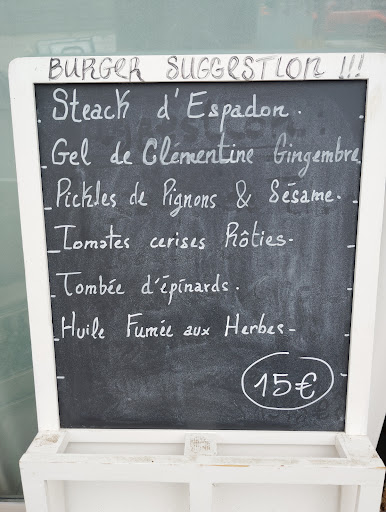 BURGER SUGGESTION !!!
Steack d'Espadon.
Gel de Clémentine Gingembre
Pickles de Pignons & Sésame.
Tomates cerises Rôties.
Tombée d'épinards.
Huile Fumée aux Herbes.
15€